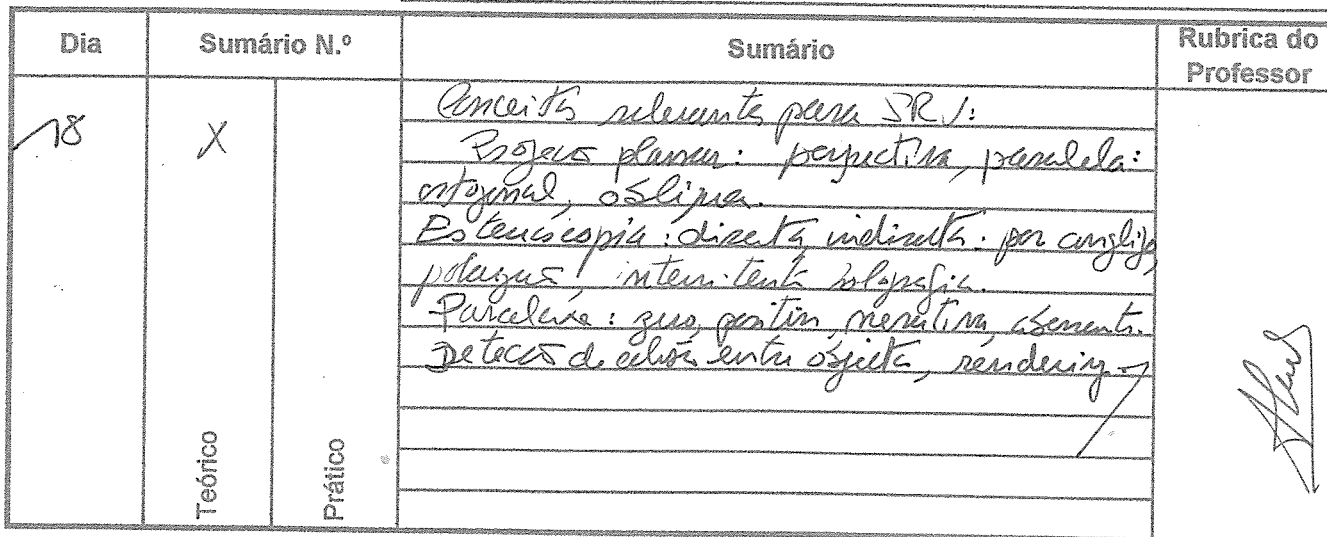 Dia Sumário N.º Sumário Rubrica do Professor
18 X
Conceitos relevantes para SRV:
Projecção planar: perspectiva, paralela:
ortogonal, oblíqua.
Estereoscopia: directa, indirecta: por anaglifo,
polarização, intermitente, holografia.
Paralaxe: zero, positiva, negativa,
Detecção de colisão entre objectos, rendering.
Teórico
Prático